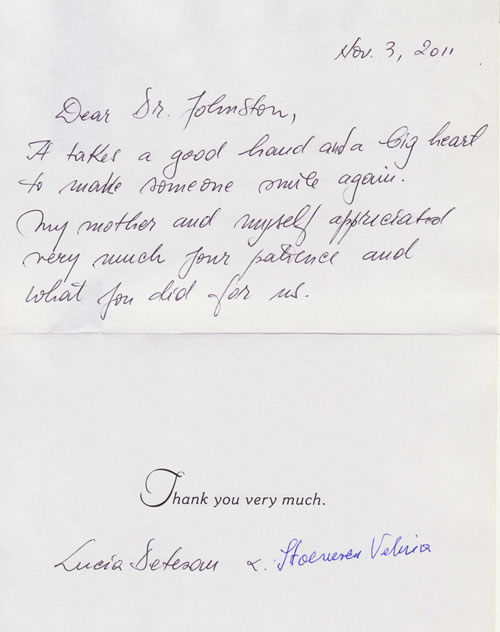 Nov. 3, 2011
Dear Dr. Johnston,
It takes a good hand and a big heart
to make someone smile again.
My mother and myself appreciated
very much your patience and
what you did for us.
Thank you very much.
Lucia